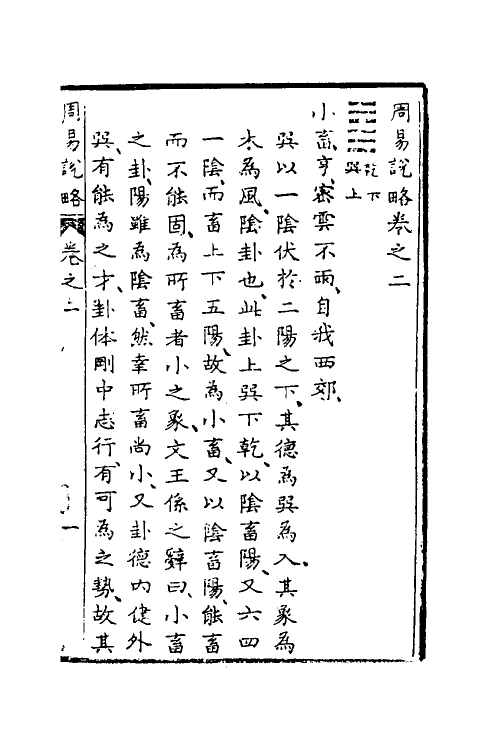 周易說略卷之二
䷈ 乾下 巽上
小畜亨、密雲不雨、自我西郊、
巽以一陰伏於二陽之下、其德為巽為入、其象為
木為風、陰卦也、此卦上巽下乾、以陰畜陽、又六四
一陰、而畜上下五陽、故為小畜、又以陰畜陽、能畜
而不能固、為所畜者小之象、文王係之辭曰、小畜
之卦、陽雖為陰畜、然幸所畜尚小、又卦德內健外
巽、有能為之才、卦体剛中志行、有可為之勢、故其
周易說略 卷之二 一